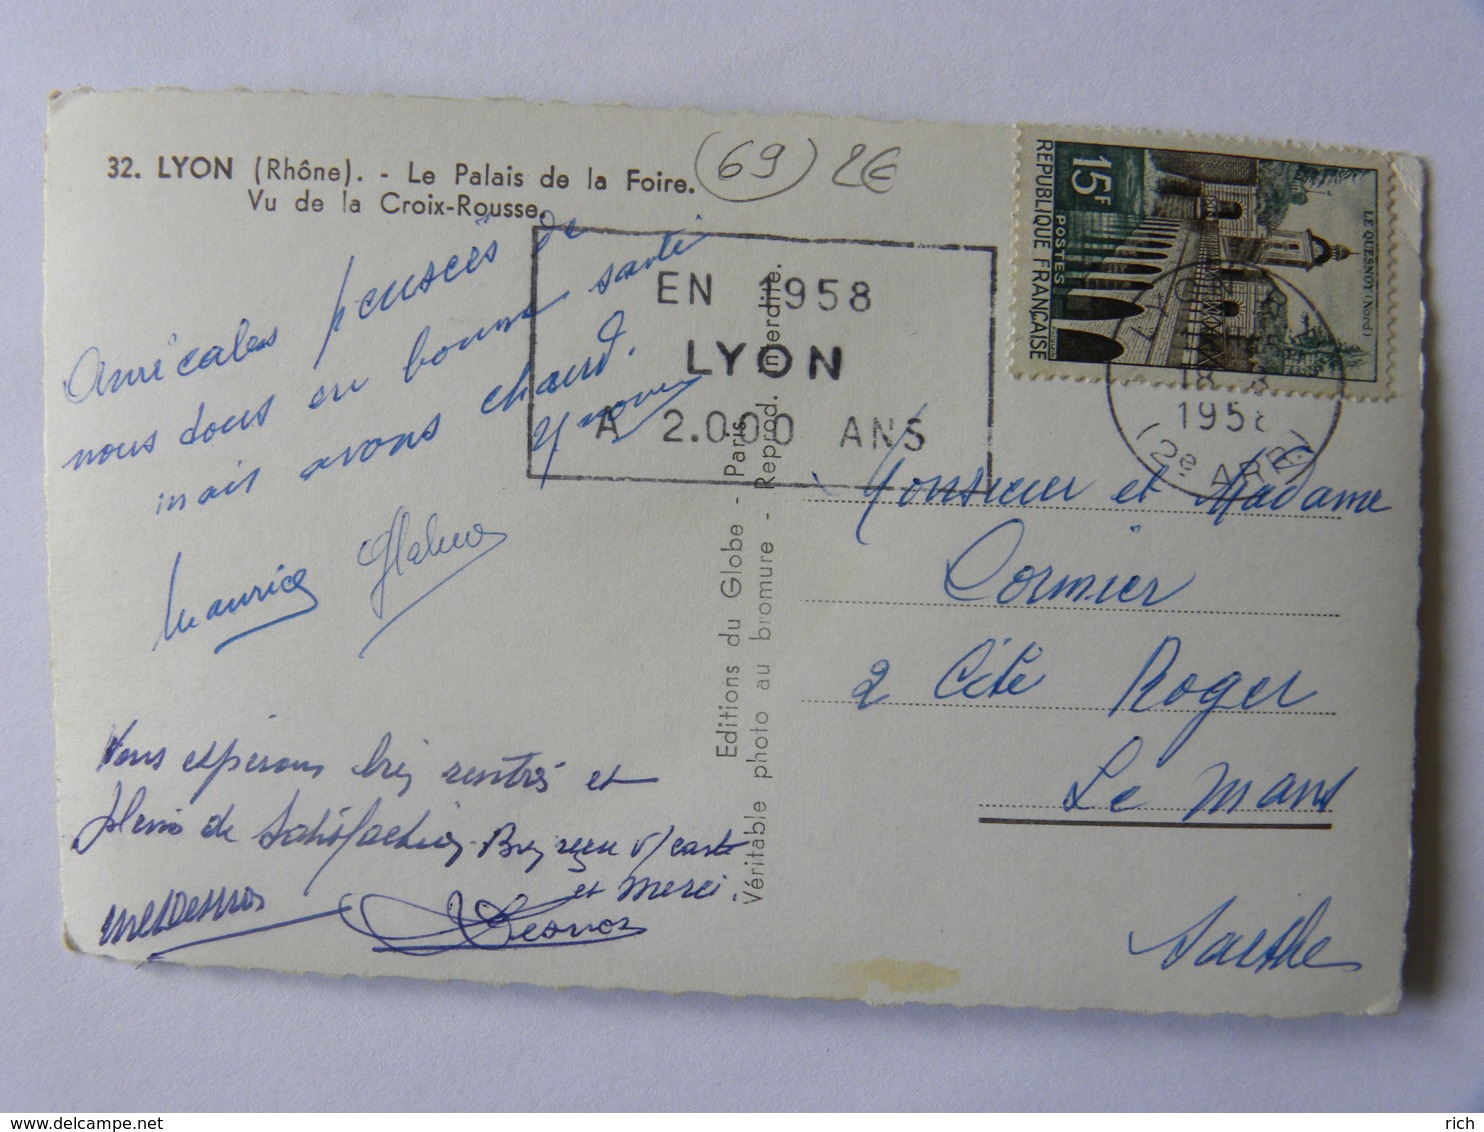 32. LYON (Rhône). - Le Palais de la Foire.
Vu de la Croix-Rousse.
(69) 2€
Amicales pensées de
nous tous en bonne santé
mais avons chaud.
Maurice
Vous espérons bien rentrés et
pleins de satisfaction. Bien reçu v/ carte
et merci.
Editions du Globe - Paris
Véritable photo au bromure - Reprod. interdite.
EN 1958
LYON
A 2.000 ANS
15F
POSTES
REPUBLIQUE FRANÇAISE
LE QUESNOY (Nord)
1958
(2e ARR)
Monsieur et Madame
Cormier
2 Cité Roger
Le Mans
Sarthe
delcampe.net
rich